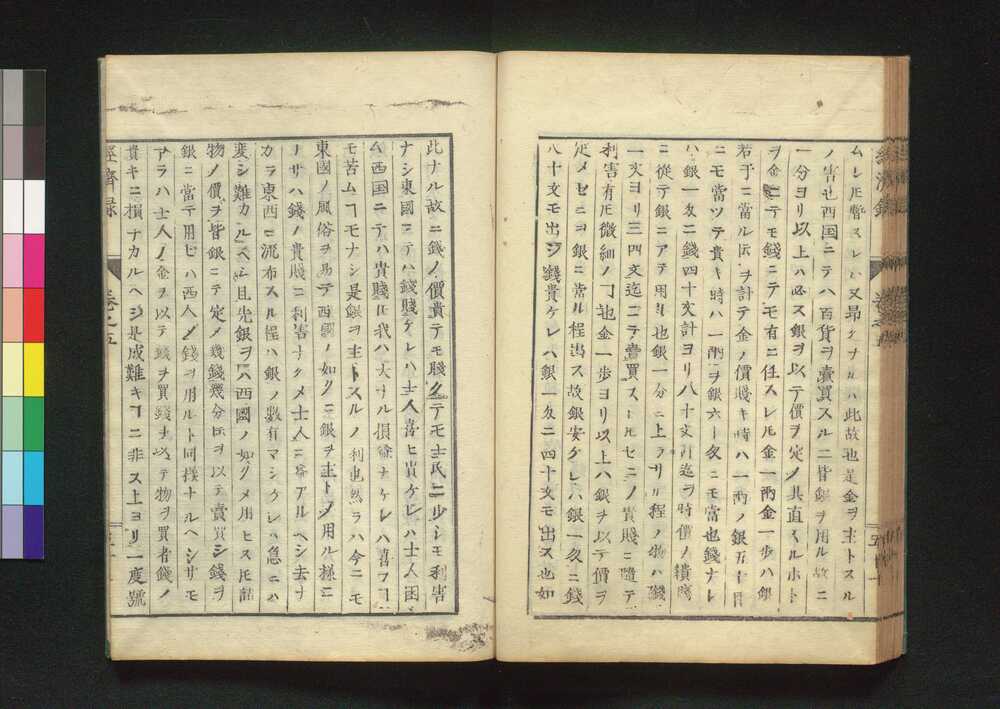 ムレ𪜈暫スレハ又昂クナルハ此故也是金ヲ主トスル
ノ害也西国ニテハ百貨ヲ賣買スルニ皆銀ヲ用ル故ニ
一分ヨリ以上ハ必ス銀ヲ以テ價ヲ定ノ其直クルホト
ヲ金ニテモ錢ニテモ有ニ任スレ𪜈金一兩金一歩ハ銀
若干ニ當ル伝ヲ計テ金ノ價賤キ時ハ一兩ノ銀五十目
ニモ當ツテ貴キ時ハ一兩ヲ銀六十匁ニモ當也錢ナレ
ハ銀一匁ニ錢四十文計ヨリ八十文計迄ヲ時價ノ
ニ從テ銀ニアテ用ル也銀一分ニ上ラサル程ノ物ハ錢
一文ヨリ三四文迄ニテ賣買スレ𪜈セニノ貴賤ニ隨テ
利害有𪜈微細ノヿ也金一歩ヨリ以上ハ銀ヲ以テ價ヲ
定メセニヲ銀ニ當ル程ス故銀安ケレハ銀一匁ニ錢
八十文モ出シ錢貴ケレハ銀一匁ニ四十文モ出ス也如
此ナル故ニ錢ノ價貴テモ賤クテモ士民ニ少シモ利害
ナシ東國ニテハ錢賤ケレハ士人喜ヒ貴ケレハ士人困
ム西国ニテハ貴賤𪜈我ハ大ナル損益ナケレハ喜フヿ
モ苦ムヿモナシ是銀ヲ主トスルノ利也然ラハ今ニモ
東國ノ風俗ヲ易テ西國ノ如クニ銀ヲ主トノ用ル様ニ
ナサハ錢ノ貴賤ニ利害ナクメ士人ニ益アルヘシ去ナ
カラ東西ニ流布スル程ハ銀ノ數有マシクシハ急ニハ
変シ難カルヘシ且先銀ヲハ西國ノ如クメ用ヒス𪜈諸
物ノ價ヲ皆銀ニテ定メ幾錢幾分𪜈ヲ以テ賣買シ錢ヲ
銀ニ當テ用ヒハ西人ノ錢ヲ用ルト同様ナルヘシサモ
アラハ士人ノ金ヲ以テ錢ヲ買錢ヲ以テ物ヲ買者錢ノ
貴キニ損ナカルヘシ是成難キヿニ非ス上ヨリ一度號
經濟録
卷之五